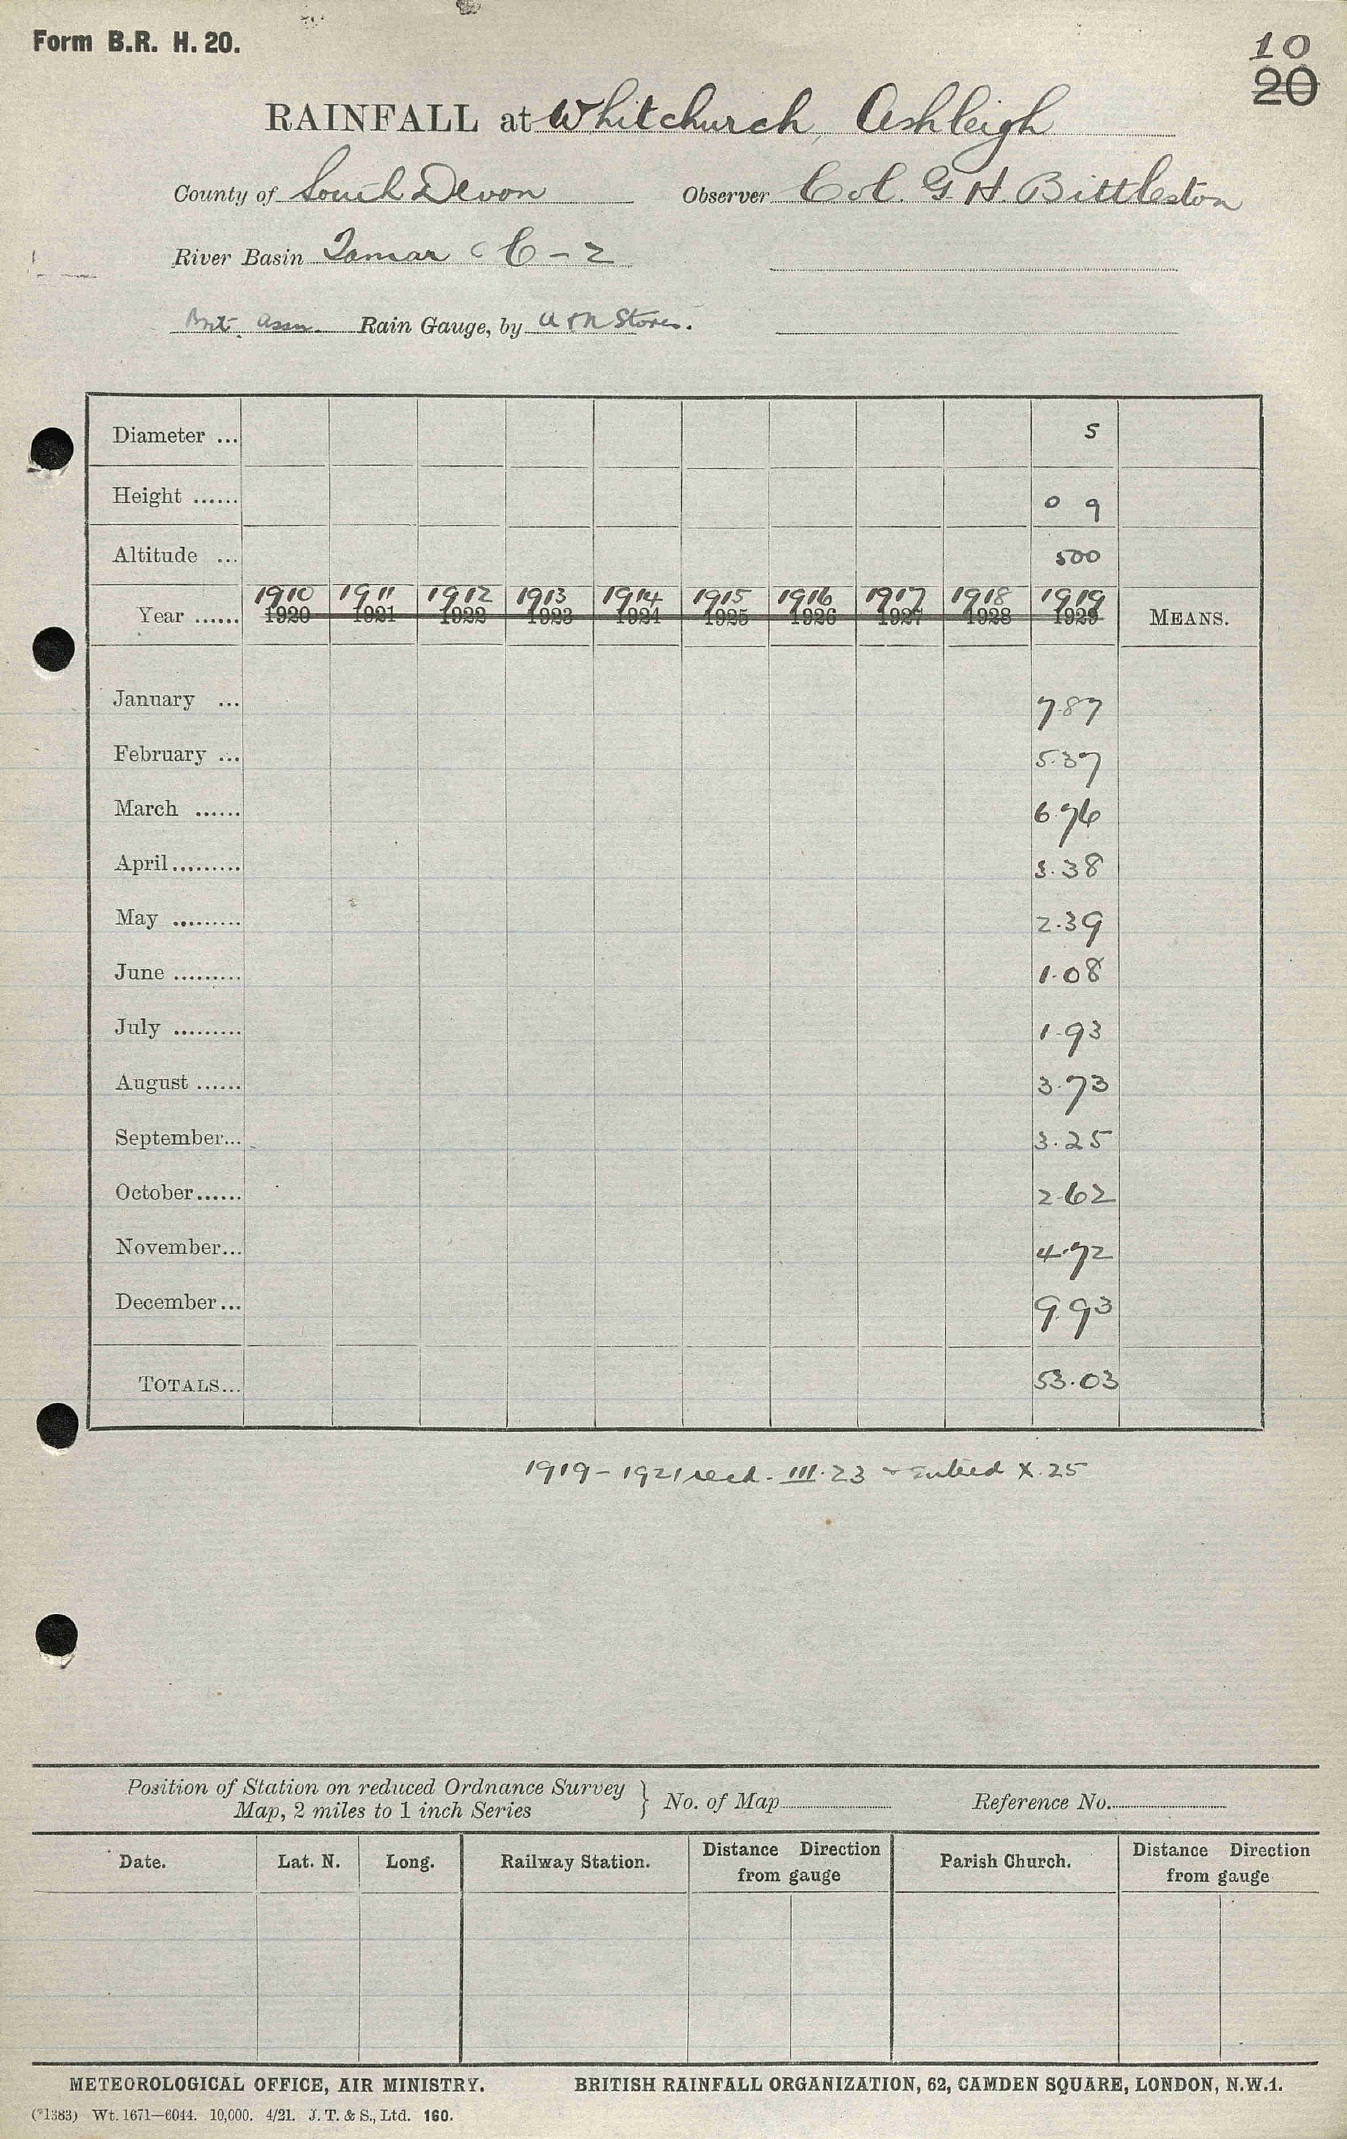 Form B.R. H. 20.
10
20
RAINFALL at Whitchurch, Ashleigh
County of South Devon Observer Col. G. H. Bittleston
River Basin Tamar C-2
Brit. Assn. Rain Gauge, by A & N Stores.
Diameter ... 5
Height ...... 0 9
Altitude ... 500
1910 1911 1912 1913 1914 1915 1916 1917 1918 1919
Year ...... 1920 1921 1922 1923 1924 1925 1926 1927 1928 1929 MEANS.
January ... 7.87
February ... 5.37
March ...... 6.76
April ......... 3.38
May ......... 2.39
June ......... 1.08
July ......... 1.93
August ...... 3.73
September... 3.25
October...... 2.62
November... 4.72
December... 9.93
TOTALS... 53.03
1919-1921 recd. III.23 entered X.25
Position of Station on reduced Ordnance Survey
Map, 2 miles to 1 inch Series } No. of Map Reference No.
Date. Lat. N. Long. Railway Station. Distance Direction from gauge Parish Church. Distance Direction from gauge
METEOROLOGICAL OFFICE, AIR MINISTRY. BRITISH RAINFALL ORGANIZATION, 62, CAMDEN SQUARE, LONDON, N.W.1.
(*1383) Wt. 1671—6044. 10,000. 4/21. J. T. & S., Ltd. 160.